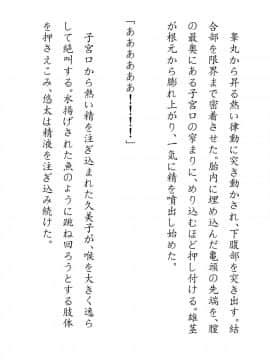 睾丸から昇る熱い律動に突き動かされ、下腹部を突き出す。結
合部を限界まで密着させた。胎内に埋め込んだ亀頭の先端を、膣
の最奥にある子宮口の窄まりに、めり込むほど押し付ける。雄茎
が根元から膨れ上がり、一気に精を噴出し始めた。
「ああああああ!!!!」
子宮口から熱い精を注ぎ込まれた久美子が、喉を大きく逸ら
して絶叫する。水揚げされた魚のように跳ね回ろうとする肢体
を押さえこみ、悠太は精液を注ぎ込み続けた。